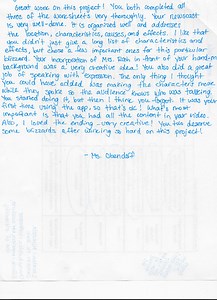 Great work on this project! You both completed all
three of the worksheets very thoroughly. Your newscast
is very well-done. It is organized well and addresses
the location, characteristics, causes, and effects. I like that
you didn't just give a long list of characteristics and
effects, but chose a few important ones for this particular
blizzard. Your incorporation of Mrs. in front of your hand-made
background was a very creative idea! You also did a great
job of speaking with expression. The only thing I thought
you could have added was making the characters move
while they spoke so the audience knows who was talking.
You started doing it, but then I think you forgot. It was your
first time using the app, so that's ok! What's most
important is that you had all the content in your video.
Also, I loved the ending - very creative! You two deserve
some blizzards after working so hard on this project!
- Ms.